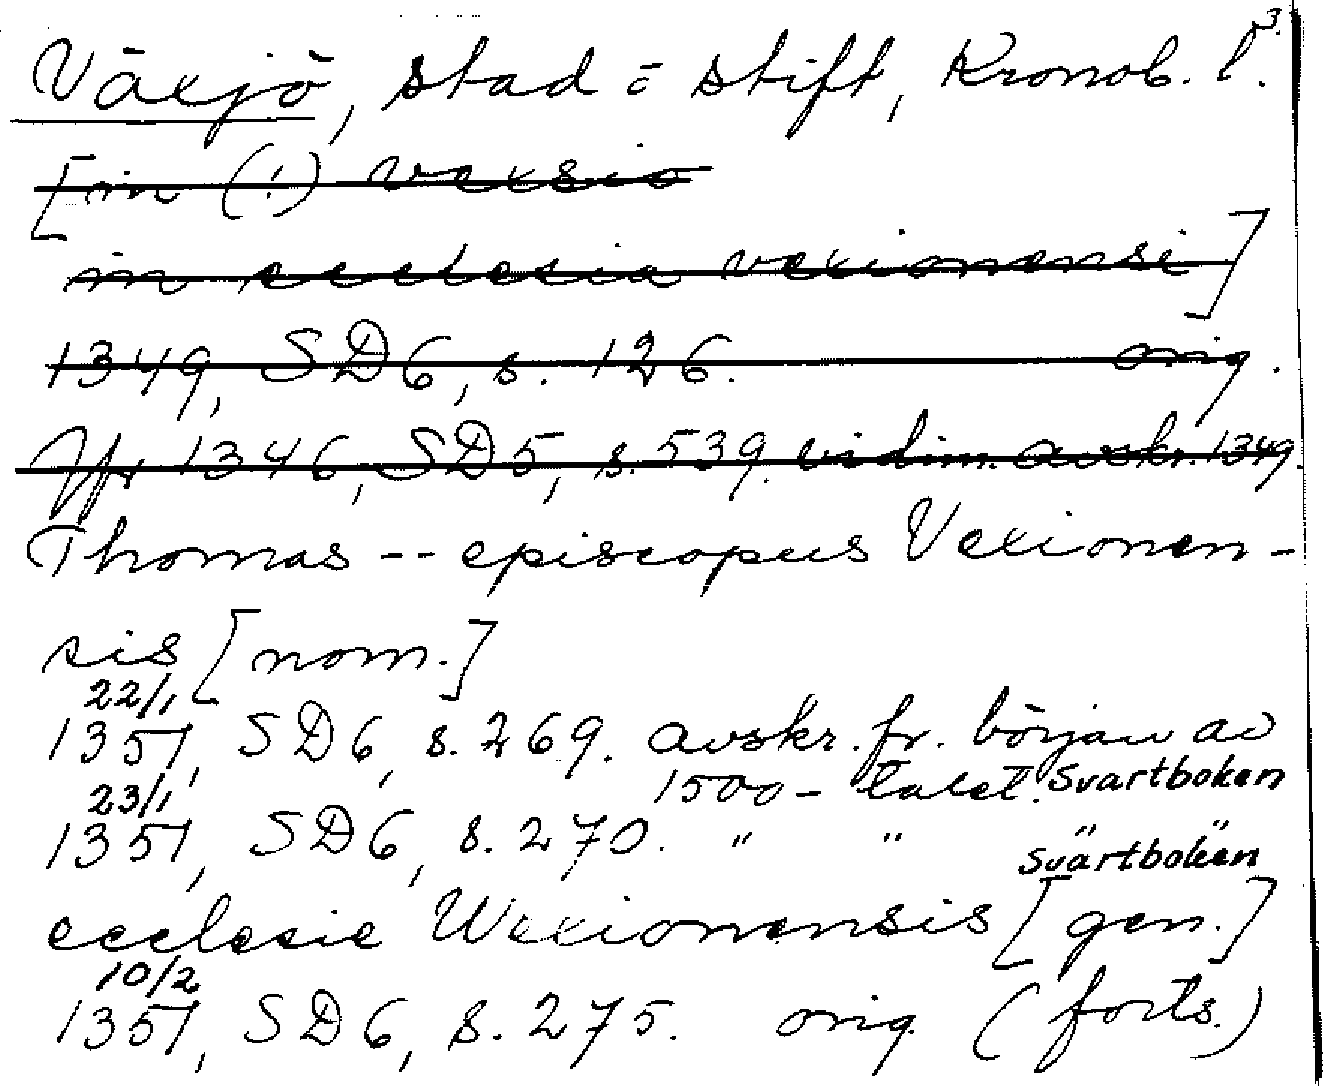 Växjö, stad o stift, Kronob. l. 3
[in (!) vexsio
in ecclesia vexionensi]
1349, SD6, s. 126. orig.
Jfr 1346, SD5, s. 539. vidim. avskr. 1349.
Thomas -- episcopus Vexionen-
sis [nom.]
22/1
1351, SD6, s. 269. avskr. fr. början av
1500-talet. Svartboken
23/1
1351, SD6, s. 270. " " " "
Svartboken
ecclesie Wexionensis [gen.]
10/2
1351, SD6, s. 275. orig (forts.)